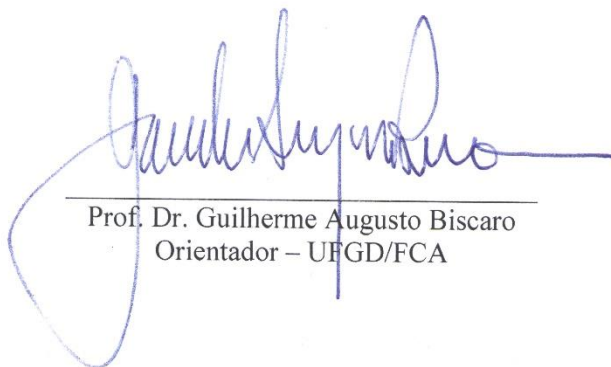 Prof. Dr. Guilherme Augusto Biscaro
Orientador – UFGD/FCA